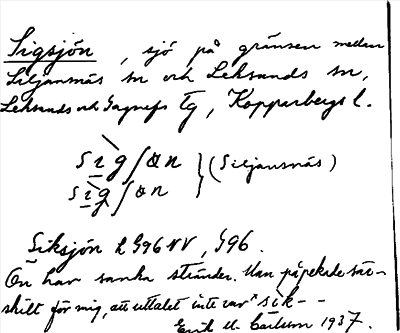 Sigsjön, sjö på gränsen mellan
Siljansnäs sn och Leksands sn,
Leksands och Gagnefs Tg, Kopparbergs l.
sìgʃɵn } (Siljansnäs)
sìgʃɵn
Siksjön R G96 NV, G96.
Ön har sanka stränder. Man påpekade sär-
skilt för mig, att uttalet inte var *sik--
Erik M. Carlsson 1937.